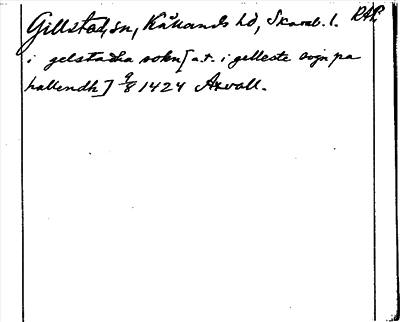 Gillstad, sn, Kållands hd, Skarab. l. RAP.
i gelstadha sokn [a.t. i gelleste sogn pa
hallendh] 9/8 1424 Axvall.